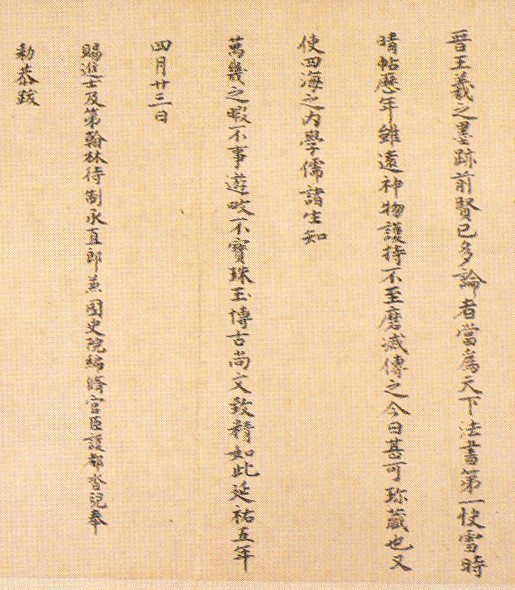 晉王羲之墨跡前賢已多論者當爲天下法書第一快雪時
晴帖歷年雖遠神物護持不至磨滅傳之今日甚可珍藏也又
使四海之內學儒諸生知
萬幾之暇不事遊畋不寶珠玉博古尚文致精如此延祐五年
四月廿三日
賜進士及第翰林待制承直郎兼國史院編脩官臣護都沓兒奉
勑恭跋